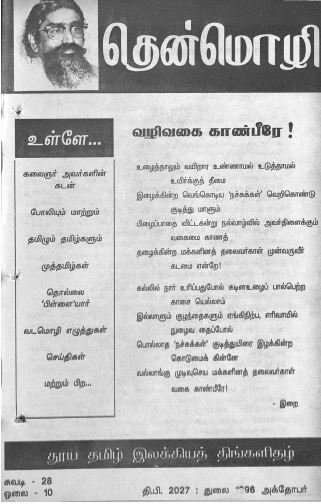 தென்மொழி
உள்ளே...
கலைஞர் அவர்களின்
கடன்
போலியும் மாற்றும்
தமிழும் தமிழ்களும்
முத்தமிழ்கள்
தொல்லை
'பிள்ளை'யார்
வடமொழி எழுத்துகள்
செய்திகள்
மற்றும் பிற...
வழிவகை காண்பீரே !
உழைத்தாலும் வயிறார உண்ணாமல் உடுத்தாமல்
உயிர்க்குத் தீமை
இழைக்கின்ற வெங்கொடிய 'நச்சுக்கள்' வெறிகொண்டு
குடித்து மாளும்
பிழைப்பாதை விட்டகன்று நல்வாழ்வில் அவர்திளைக்கும்
வகைமை காணத்
தழைக்கின்ற மக்களினத் தலைவர்காள் முன்வருவீர்
கடமை என்றே!
கல்லில் நார் உரிப்பதுபோல் கடினஉழைப் பால்பெற்ற
காசை யெல்லாம்
இல்லாளும் குழந்தைகளும் ஏங்கிநிற்ப, எரிவாயில்
நுழைவ தைப்போல்
பொல்லாத 'நச்சுக்கள்' குடித்துயிரை இழக்கின்ற
கொடுமைக் கின்னே
வல்லாங்கு முடிவுசெய மக்களினத் தலைவர்காள்
வகை காண்பீரே!
- இறை
தூய தமிழ் இலக்கியத் திங்களிதழ்
சுவடி - 28
ஓலை - 10
தி.பி. 2027 : துலை 1996 அக்தோபர்